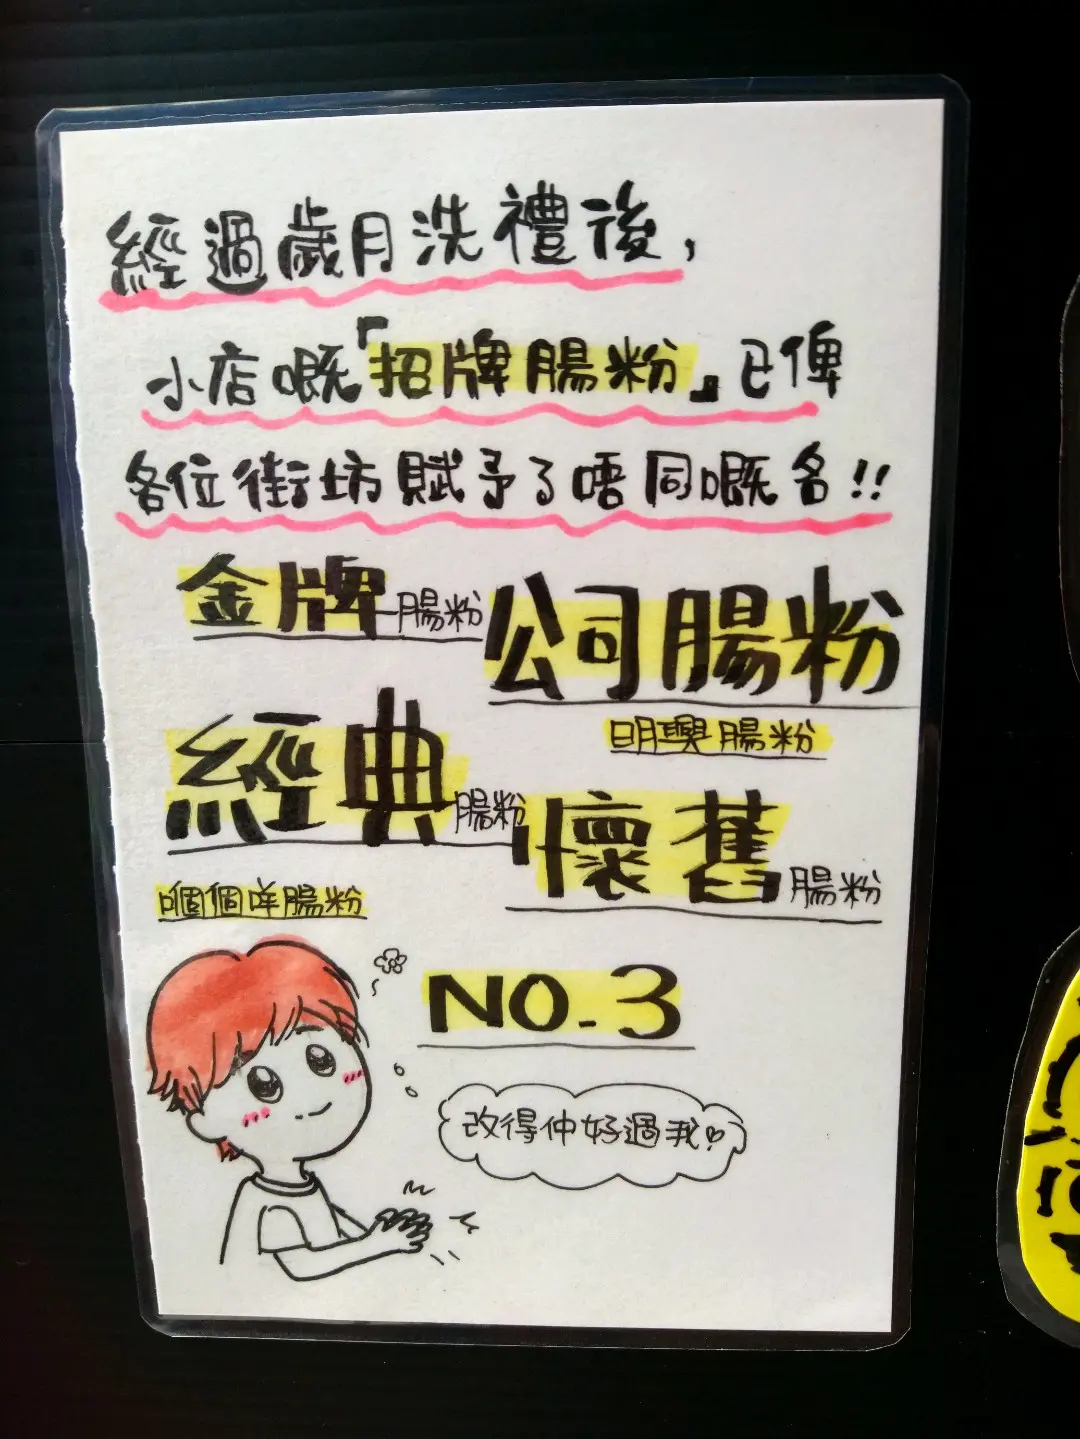 經過歲月洗禮後，
小店嘅「招牌腸粉」已俾
各位街坊賦予了唔同嘅名!!
金牌腸粉
公司腸粉
明興腸粉
經典腸粉
懷舊腸粉
嗰個咩腸粉
NO.3
改得仲好過我